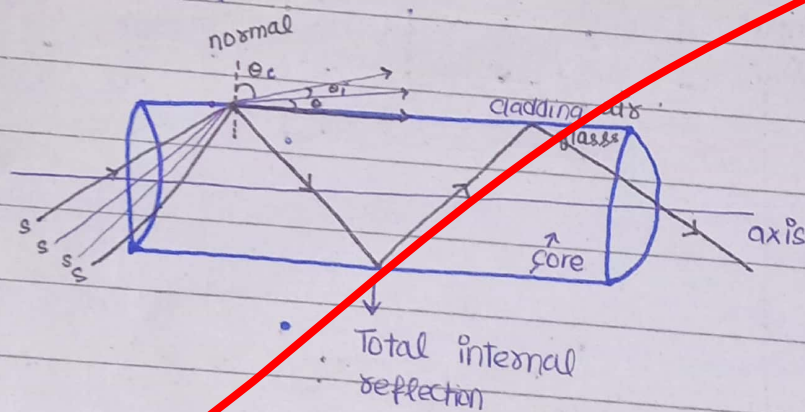 normal
θc
θi
θ
cladding air
glass
S
S
S
S
axis
core
Total internal
reflection